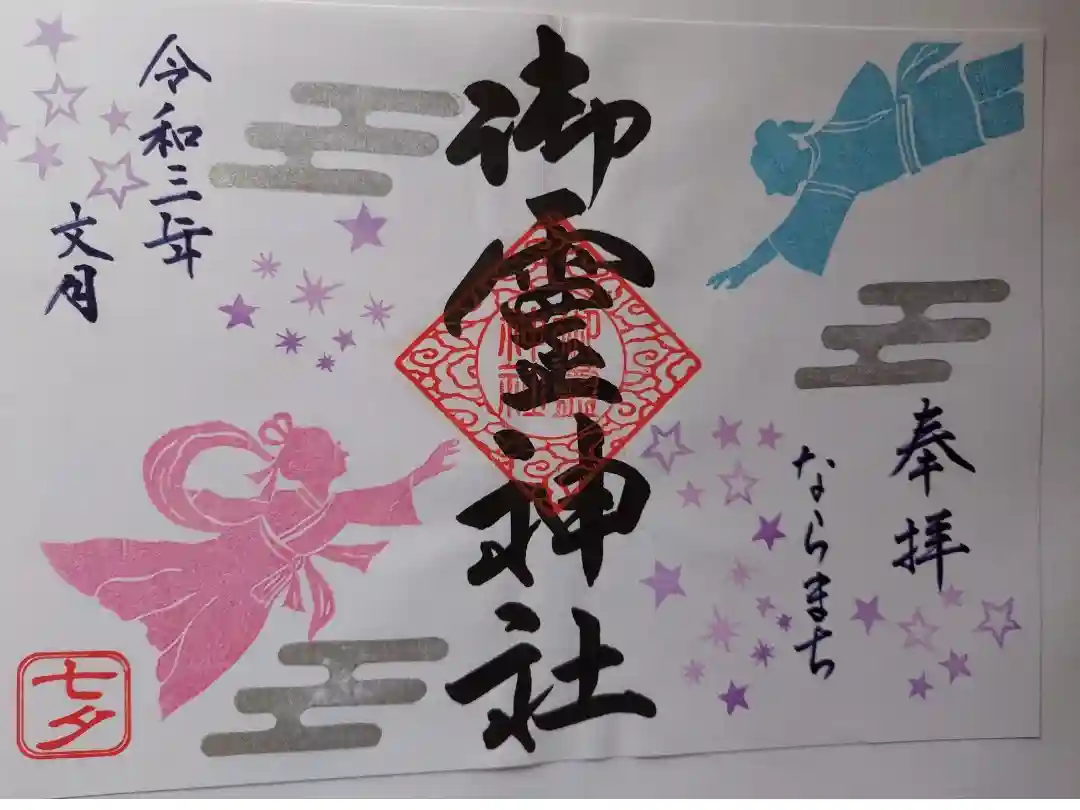 奉拝
ならまち
御霊神社
御霊
神社
令和三年
文月
七夕